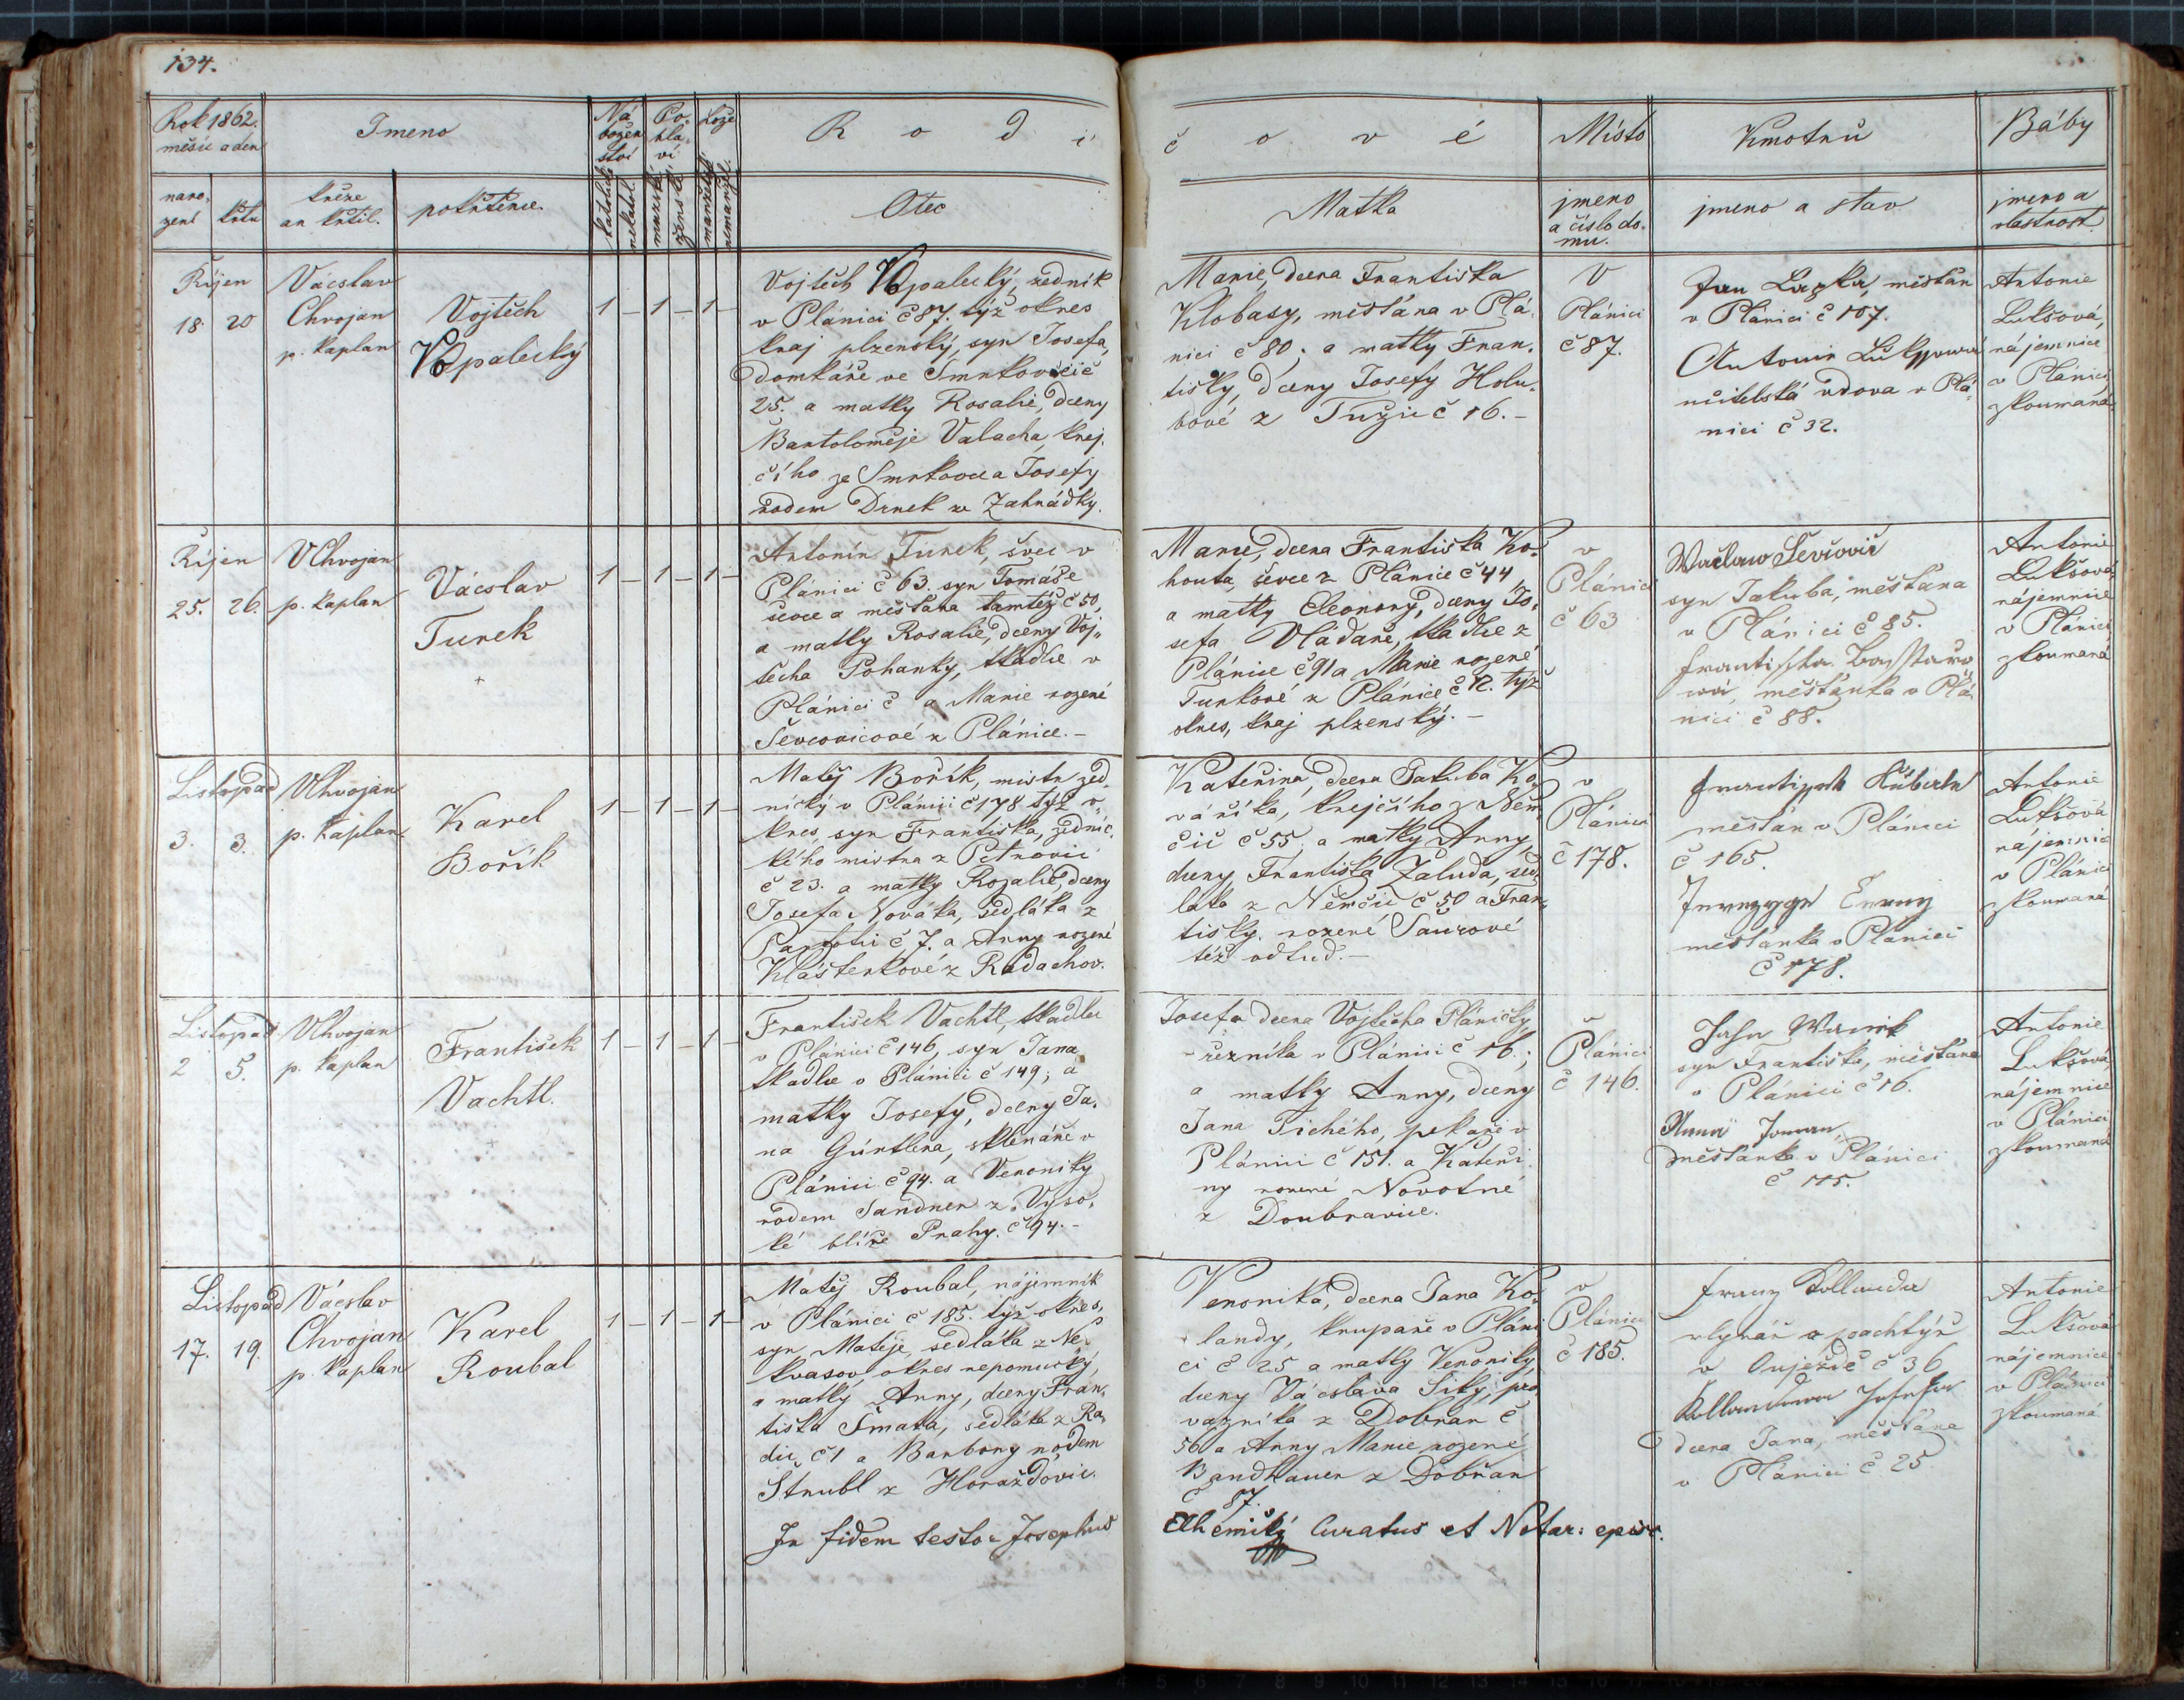 134.
Rok 1862.
měsíc a den
Jmeno
Ná
božen
ství
Po
hla
ví
Lože
R o d i
č o v é
Místo
Kmotrů
Báby
naro
zení
křtu
kněze
an křtil.
pokřtěnce.
katolické
nekatol.
mužské
ženské
manželsk
nemanžel.
Otec
Matka
jmeno
a číslo do.
mu.
jmeno a stav
jmeno a
vlastnost
Říjen
18. 20
Vácslav
Chvojan
p. kaplan
Vojtěch
Vopalecký
1 – 1 – 1 –
Vojtěch Vopalecký, zedník
v Plánici č 87. týž okres
kraj plzenský, syn Josefa,
domkáře ve Smrkovčici č
25. a matky Rosalie, dcery
Bartoloměje Valacha, krej.
čího ze Smrkovce a Josefy
rodem Drnek ze Zahrádky.
Marie, dcera Františka
Klobasy, měšťána v Plá.
nici č 80; a matky Fran.
tišky, dcery Josefy Holu.
bové z Tužic č 16. –
V
Plánici
č 87.
Jan Lapka, měšťan
v Plánici č 107.
učitelská vdova v Plá
nici č 32.
Antonie
Lukšová,
nájemnice
v Plánici
zkoumaná
Říjen
25. 26.
V Chvojan
p. kaplan
Vácslav
Turek
+
1 – 1 – 1 –
Antonín Turek, švec v
Plánici č 63. syn Tomáše
ševce a měšťana tamtéž č 50,
a matky Rosalie, dcery Voj„
těcha Pohanky, tkadlce v
Plánici č a Marie rozené
Ševcovicové z Plánice. –
Marie, dcera Františka Ko.
houta, ševce z Plánice č 44
a matky Eleonory, dcery Jo.
sefa Vladaře, tkadlce z
Plánice č 91 a Marie rozené
Turkové z Plánice č 12. týž
okres, kraj plzenský. –
v
Plánici
č 63
WaclawŠevčovič
syn Jakuba, měšťána
v Plánici č 85.
měšťanka v Plá.
nici č 88.
Antonie
Lukšová
nájemnice
v Plánici
zkoumaná
Listopad
3. 3.
V Chvojan
p. kaplan
Karel
Bořík
1 – 1 – 1 –
Matěj Bořík, mistr zed.
nický v Plánici č 178 týž o.
kres, syn Františka, zednic.
kého mistra z Petrovic
č 23. a matky Rozalie, dcery
Josefa Nováka, sedláka z
č 7. a Anny rozené
Klášterkové z Radachov.
Kateřina, dcera Jakuba Ko.
váříka, krejčího z Něm
čic č 55; a matky Anny,
dcery Františka Žaluda, sed.
láka z Němčic č 50 a Fran.
tišky rozené Saurové
též odtud. –
v
Plánici
č 178.
měšťan v Plánici
č 165.
měšťanka v Plánici
č 178.
Antonie
Lukšová
nájemnice
v Plánici
zkoumaná
Listopad
2 5.
V Chvojan
p. kaplan
František
Vachtl.
+
1 – 1 – 1 –
František Vachtl, tkadlec
v Plánici č 146, syn Jana
tkadlce v Plánici č 149; a
matky Josefy, dcery Ja.
na Gürtlera, sklenáře v
Plánici č 94. a Veroniky
rodem Sandner z Vyso.
ké blíže Prahy. č 94. –
Josefa dcera Vojtěcha Pláničky,
řezníka v Plánici č 16.;
a matky Anny, dcery
Jana Tichého, pekaře v
Plánici č 151. a Kateři
ny rozené Novotné
z Doubravice.
v
Plánici
č 146.
syn Františka, měšťana
v Plánici č 16.
Anna
měšťanka v Plánici
č 115.
Antonie
Lukšová,
nájemnice
v Plánici
zkoumaná
Listopad
17. 19.
Vácslav
Chvojan
p. kaplan
Karel
Roubal
1 – 1 – 1 –
Matěj Roubal, nájemník
v Plánici č 185. týž okres,
syn Matěje, sedláka z Ne.
kvasov, okres nepomucký,
a matky Anny, dcery Fran.
tiška Šmata, sedláka z Ra
dic č 1 a Barbory rodem
Štrubl z Horažďovic.
Veronika, dcera Jana Ko.
landy, krupaře v Pláni
ci č 25 a matky Veroniky,
dcery Vácslava Siky, pro
vazníka z Dobřan č
56 a Anny Marie rozené
Bandhauer z Dobřan
č 87.
v
Plánici
č 185.
Franz Kollanda
mlynář a pachtýř
v Oujezdě č 36
dcera Jana, měšťana
v Plánici č 25
Antonie
Lukšová
nájemnice
v Plánici
zkoumaná
In fidem testor Josephus
curatus et Notar: episc.